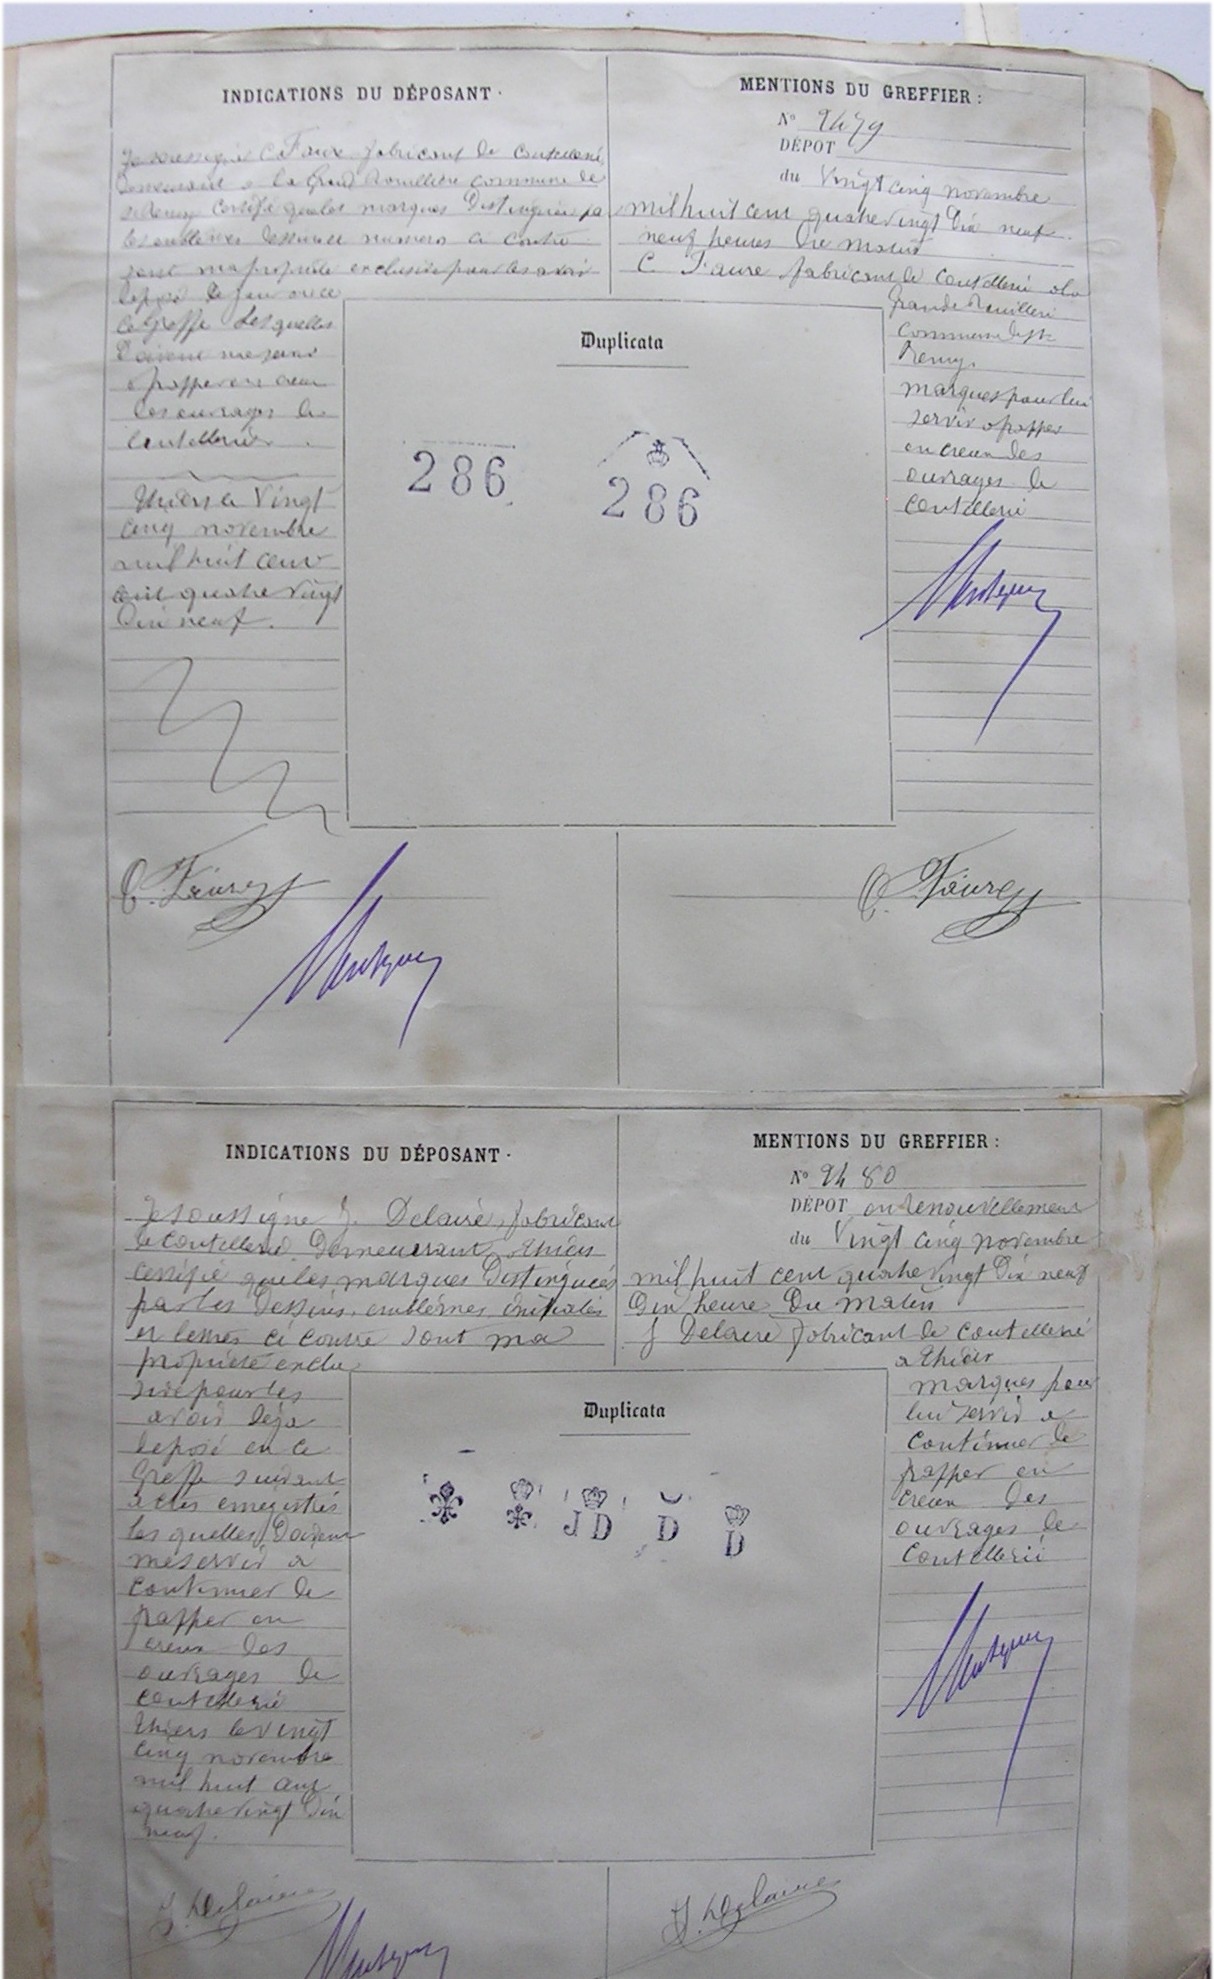 INDICATIONS DU DÉPOSANT
Je soussigné C Faure fabricant de Coutellerie
demeurant a la Grand Rouillière commune de
St Remy certifie que les marques Distinguées pa
les emblêmes dessus et numero ci contre
sont ma propriété exclusive pour les avoir
déposé ce jour
ce Greffe Lesquelles
Doivent me servir
a frapper en creux
les ouvrages de
Coutellerie
Thiers le Vingt
cinq novembre
mil huit cent
quatre vingt
Dix neuf.
MENTIONS DU GREFFIER :
N° 2479
DÉPÔT
du Vingt cinq novembre
mil huit cent quatre vingt Dix neuf
neuf heures Du matin
C. Faure fabricant de Coutellerie a la
Grande Rouillere
Commune de St
Remy
marques pour lui
servir a frapper
en creux des
ouvrages de
Coutellerie
Duplicata
286
286
C. Faure
C. Faure
INDICATIONS DU DÉPOSANT
Je soussigné J. Delaire, fabricant
de Coutellerie Demeurant a Thiers
certifie que les marques Distinguées
par les Dessins, emblêmes, initiales
et lettres ci contre sont ma
propriété exclu
sive pour les
avoir déja
déposé en ce
Greffe suivant
actes enregistrés
les quelles Doivent
me servir a
continuer de
frapper en
creux des
ouvrages de
Coutellerie
Thiers le vingt
cinq novembre
mil huit cent
quatre vingt Dix
neuf.
MENTIONS DU GREFFIER :
N° 2480
DÉPÔT en Renouvellement
du Vingt cinq novembre
mil huit cent quatre vingt Dix neuf
Dix heure Du Matin
J Delaire fabricant de Coutellerie
a Thiers
marques pour
lui servir a
continuer de
frapper en
creux des
ouvrages de
Coutellerie
Duplicata
JD D D
J. Delaire
J. Delaire